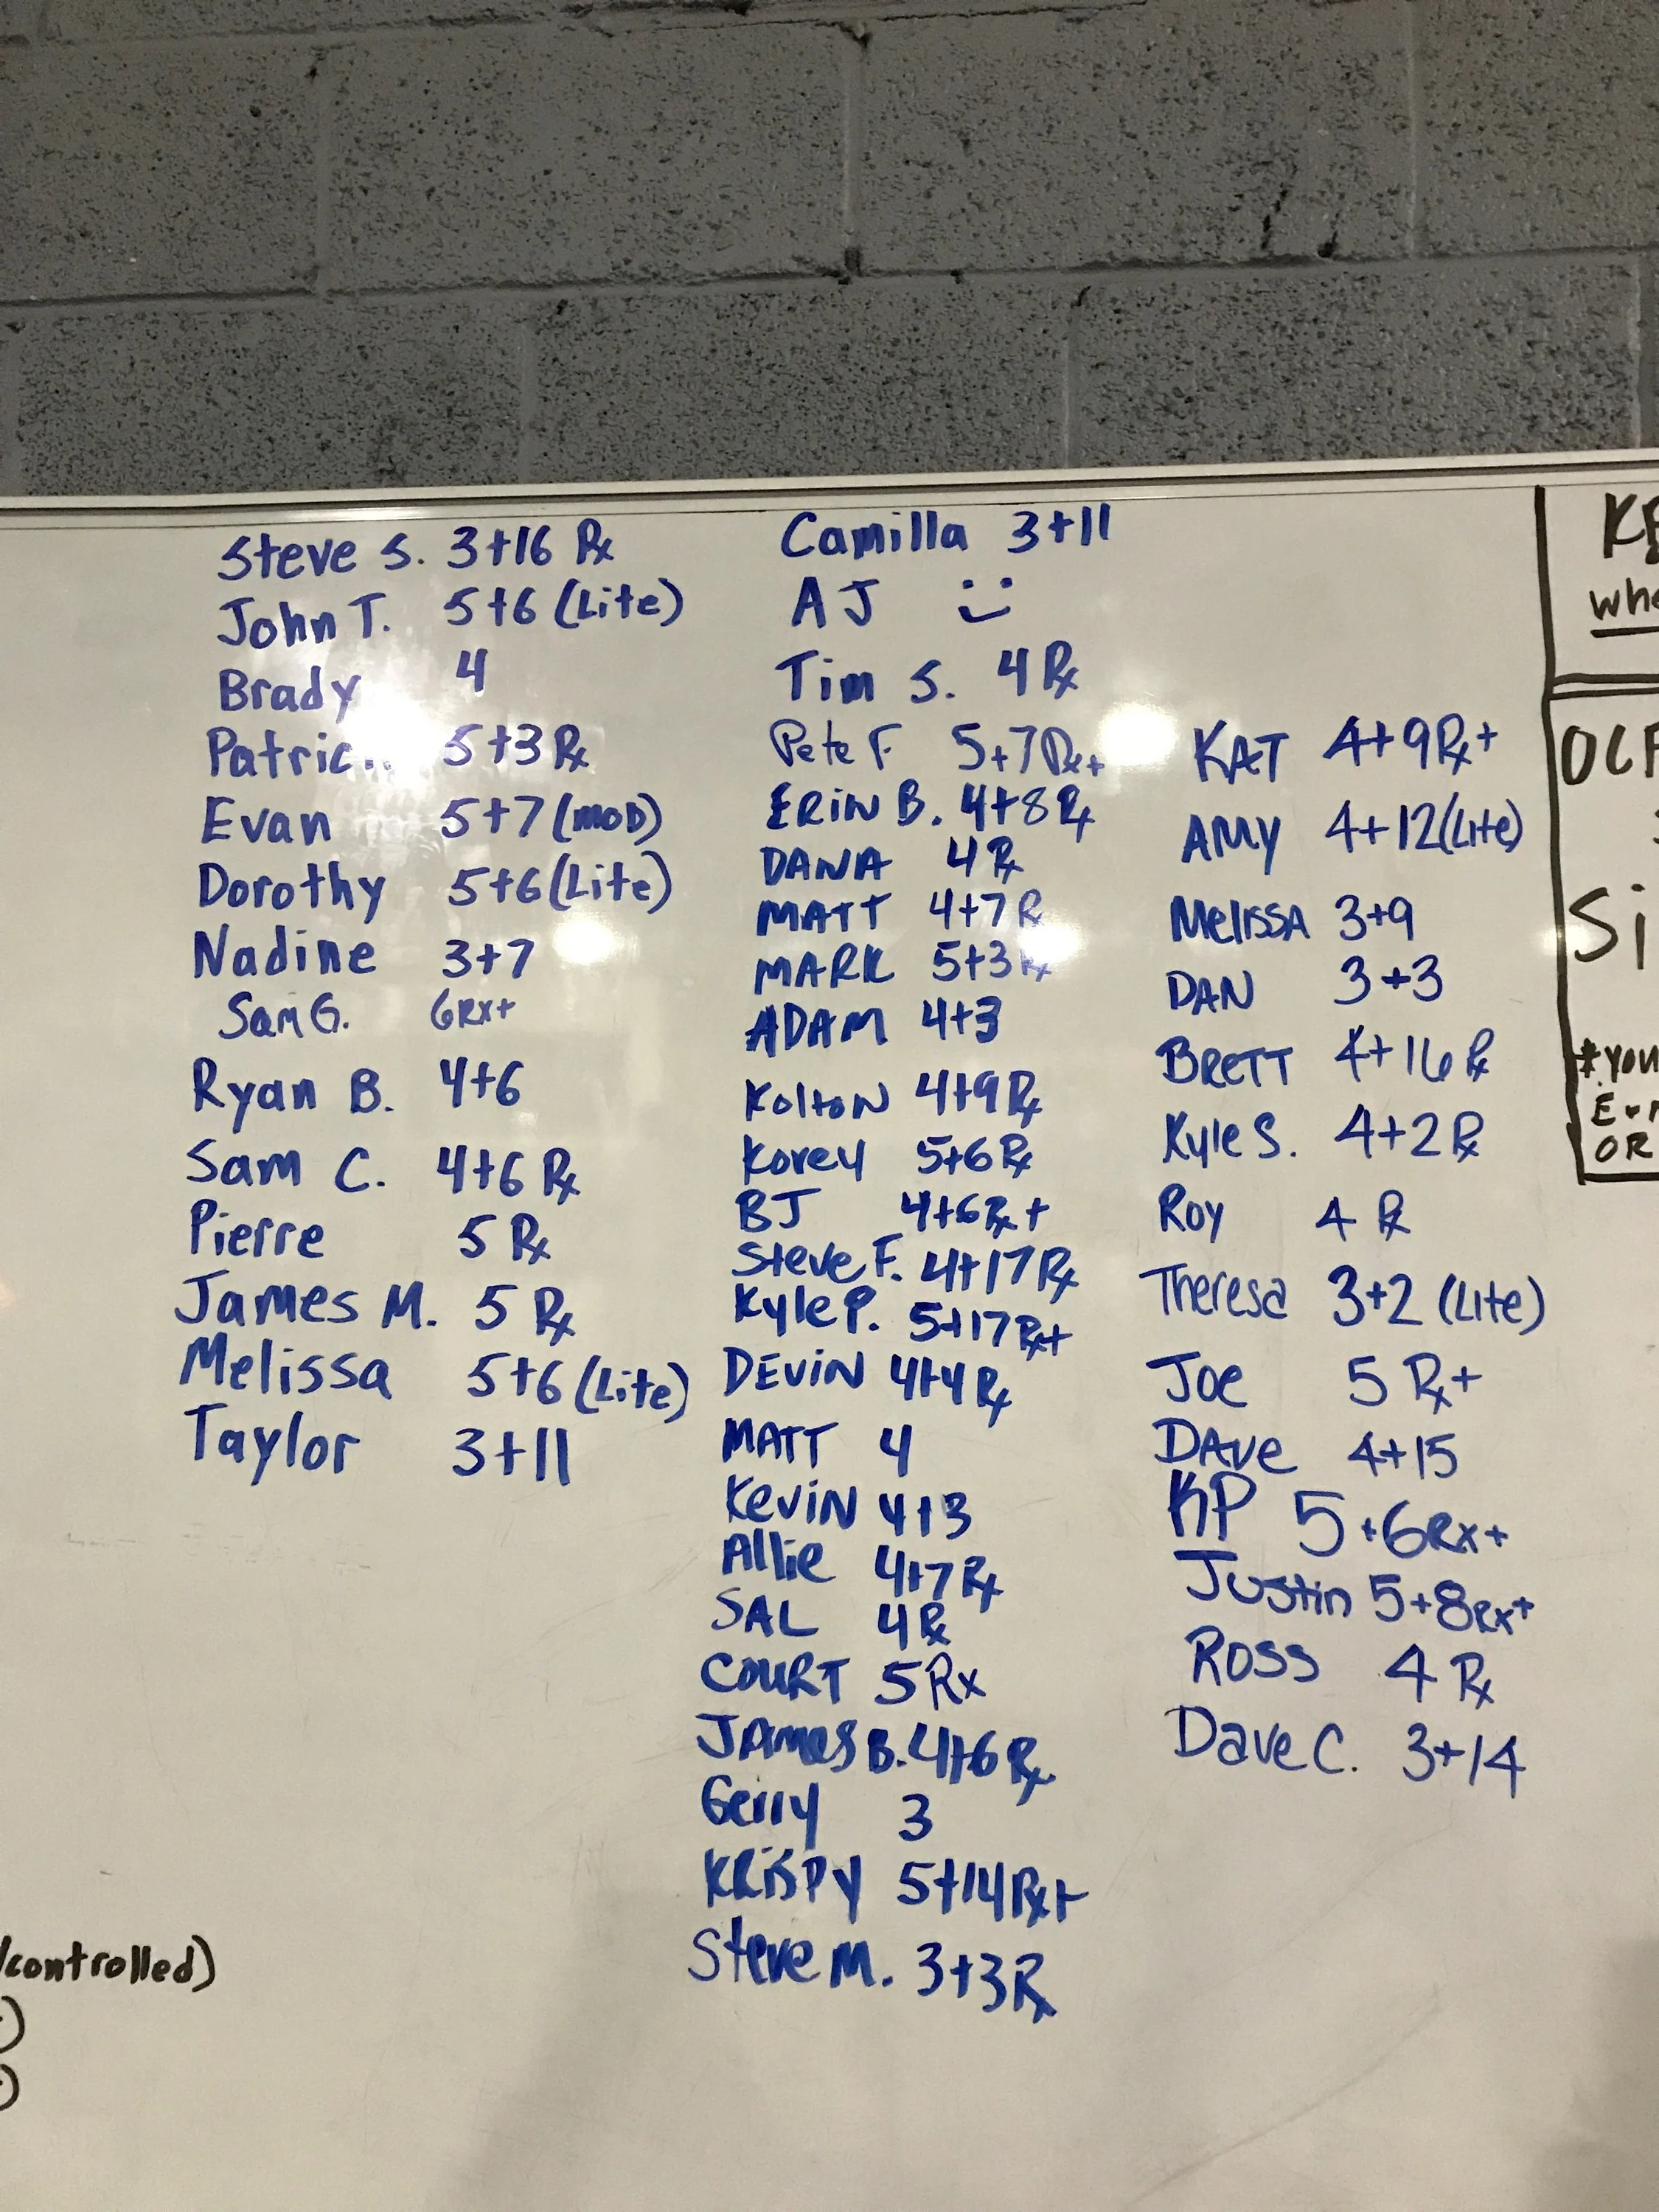 Steve S. 3+16 Rx
John T. 5+6 (Lite)
Brady 4
5+3 Rx
Evan 5+7 (MOD)
Dorothy 5+6 (Lite)
Nadine 3+7
Sam G. 6RX+
Ryan B. 4+6
Sam C. 4+6 Rx
Pierre 5 Rx
James M. 5 Rx
Melissa 5+6 (Lite)
Taylor 3+11
Camilla 3+11
AJ
Tim S. 4 Rx
Pete F 5+7 Rx+
ERIN B. 4+8 Rx
DANA 4 Rx
MATT 4+7 R
MARK 5+3 Rx
ADAM 4+3
Kolton 4+9 Rx
Korey 5+6 Rx
BJ 4+6 Rx+
Steve F. 4+17 Rx
Kyle P. 5+17 Rx+
DEViN 4+4 Rx
MATT 4
KeviN 4+3
Allie 4+7 Rx
SAL 4 Rx
COURT 5 Rx
JAMES B. 4+6 Rx
Gerry 3
KRiSPY 5+14 Rx+
Steve M. 3+3 Rx
KAT 4+9 Rx+
AMY 4+12 (Lite)
MelissA 3+9
DAN 3+3
BRETT 4+16 Rx
Kyle S. 4+2 Rx
Roy 4 Rx
Theresa 3+2 (Lite)
Joe 5 Rx+
DAve 4+15
KP 5+6 RX+
Justin 5+8 RX+
Ross 4 Rx
Dave C. 3+14
/controlled)
OR